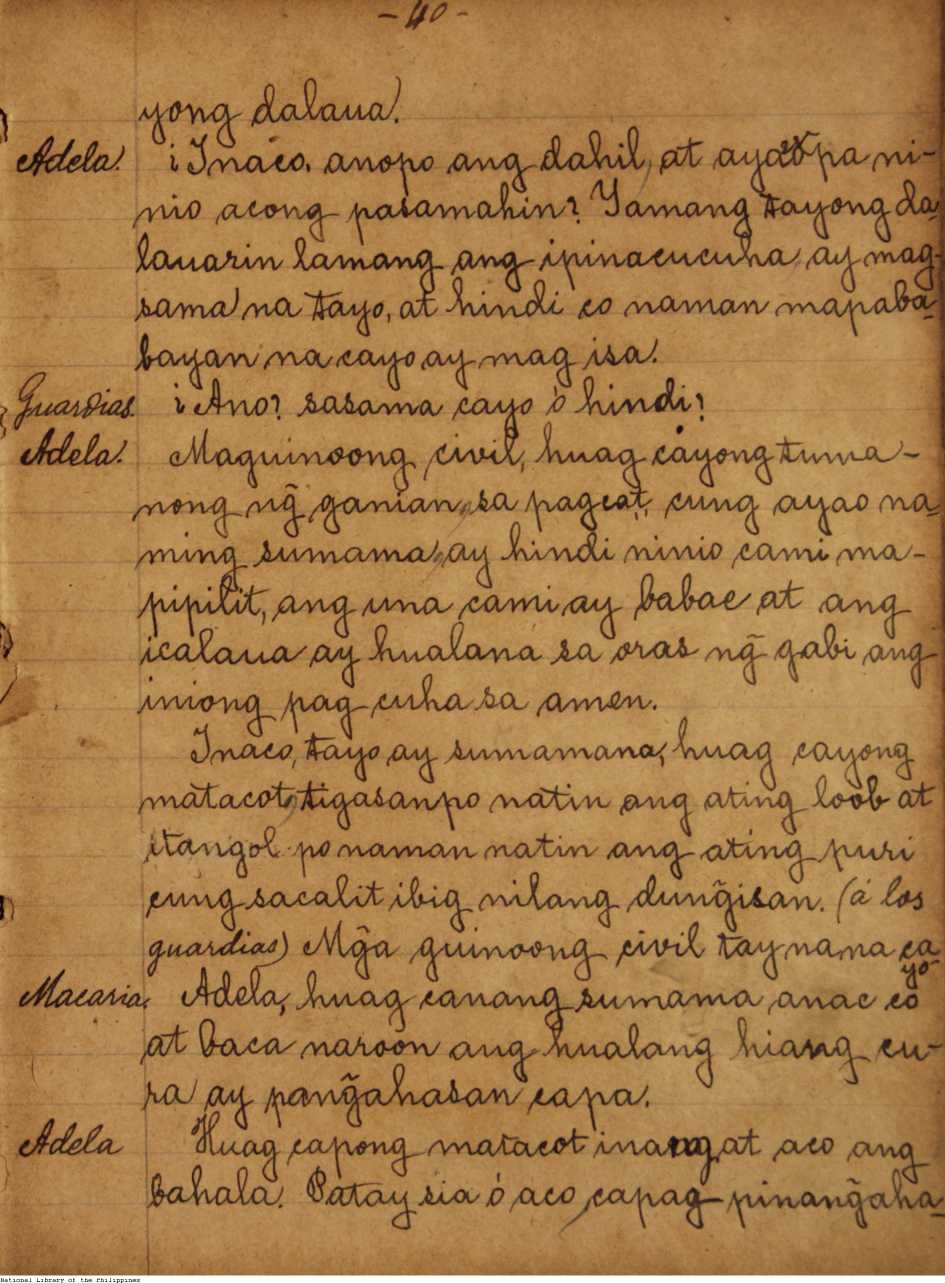 - 40 -
yong dalaua.
Adela. ¡Inaco, anopo ang dahil, at ayao pa ni-
nio acong pasamahin? Yamang tayong da-
lauarin lamang ang ipinacucuha, ay mag-
sama na tayo, at hindi co naman mapaba-
bayan na cayo ay mag isa.
Guardias. ¿Ano? sasama cayo ó hindi?
Adela. Maguinoong civil, huag cayong tuma-
nong ng̃ ganian, sa pagcat, cung ayao na-
ming sumama, ay hindi ninio cami ma-
pipilit, ang una cami ay babae at ang
icalaua ay hualana sa oras ng̃ gabi ang
iniong pag cuha sa amen.
Inaco, tayo ay sumamana, huag cayong
matacot, tigasanpo natin ang ating loob at
itangol po naman natin ang ating puri
cung sacalit ibig nilang dung̃isan. (á los
guardias) Mg̃a guinoong civil tay na na ca
yo
Macaria. Adela, huag canang sumama anac co
at baca naroon ang hualang hiang cu-
ra ay pang̃ahasan capa.
Adela Huag capong matacot inang at aco ang
bahala. Patay sia ó aco, capag pinang̃aha-
National Library of the Philippines